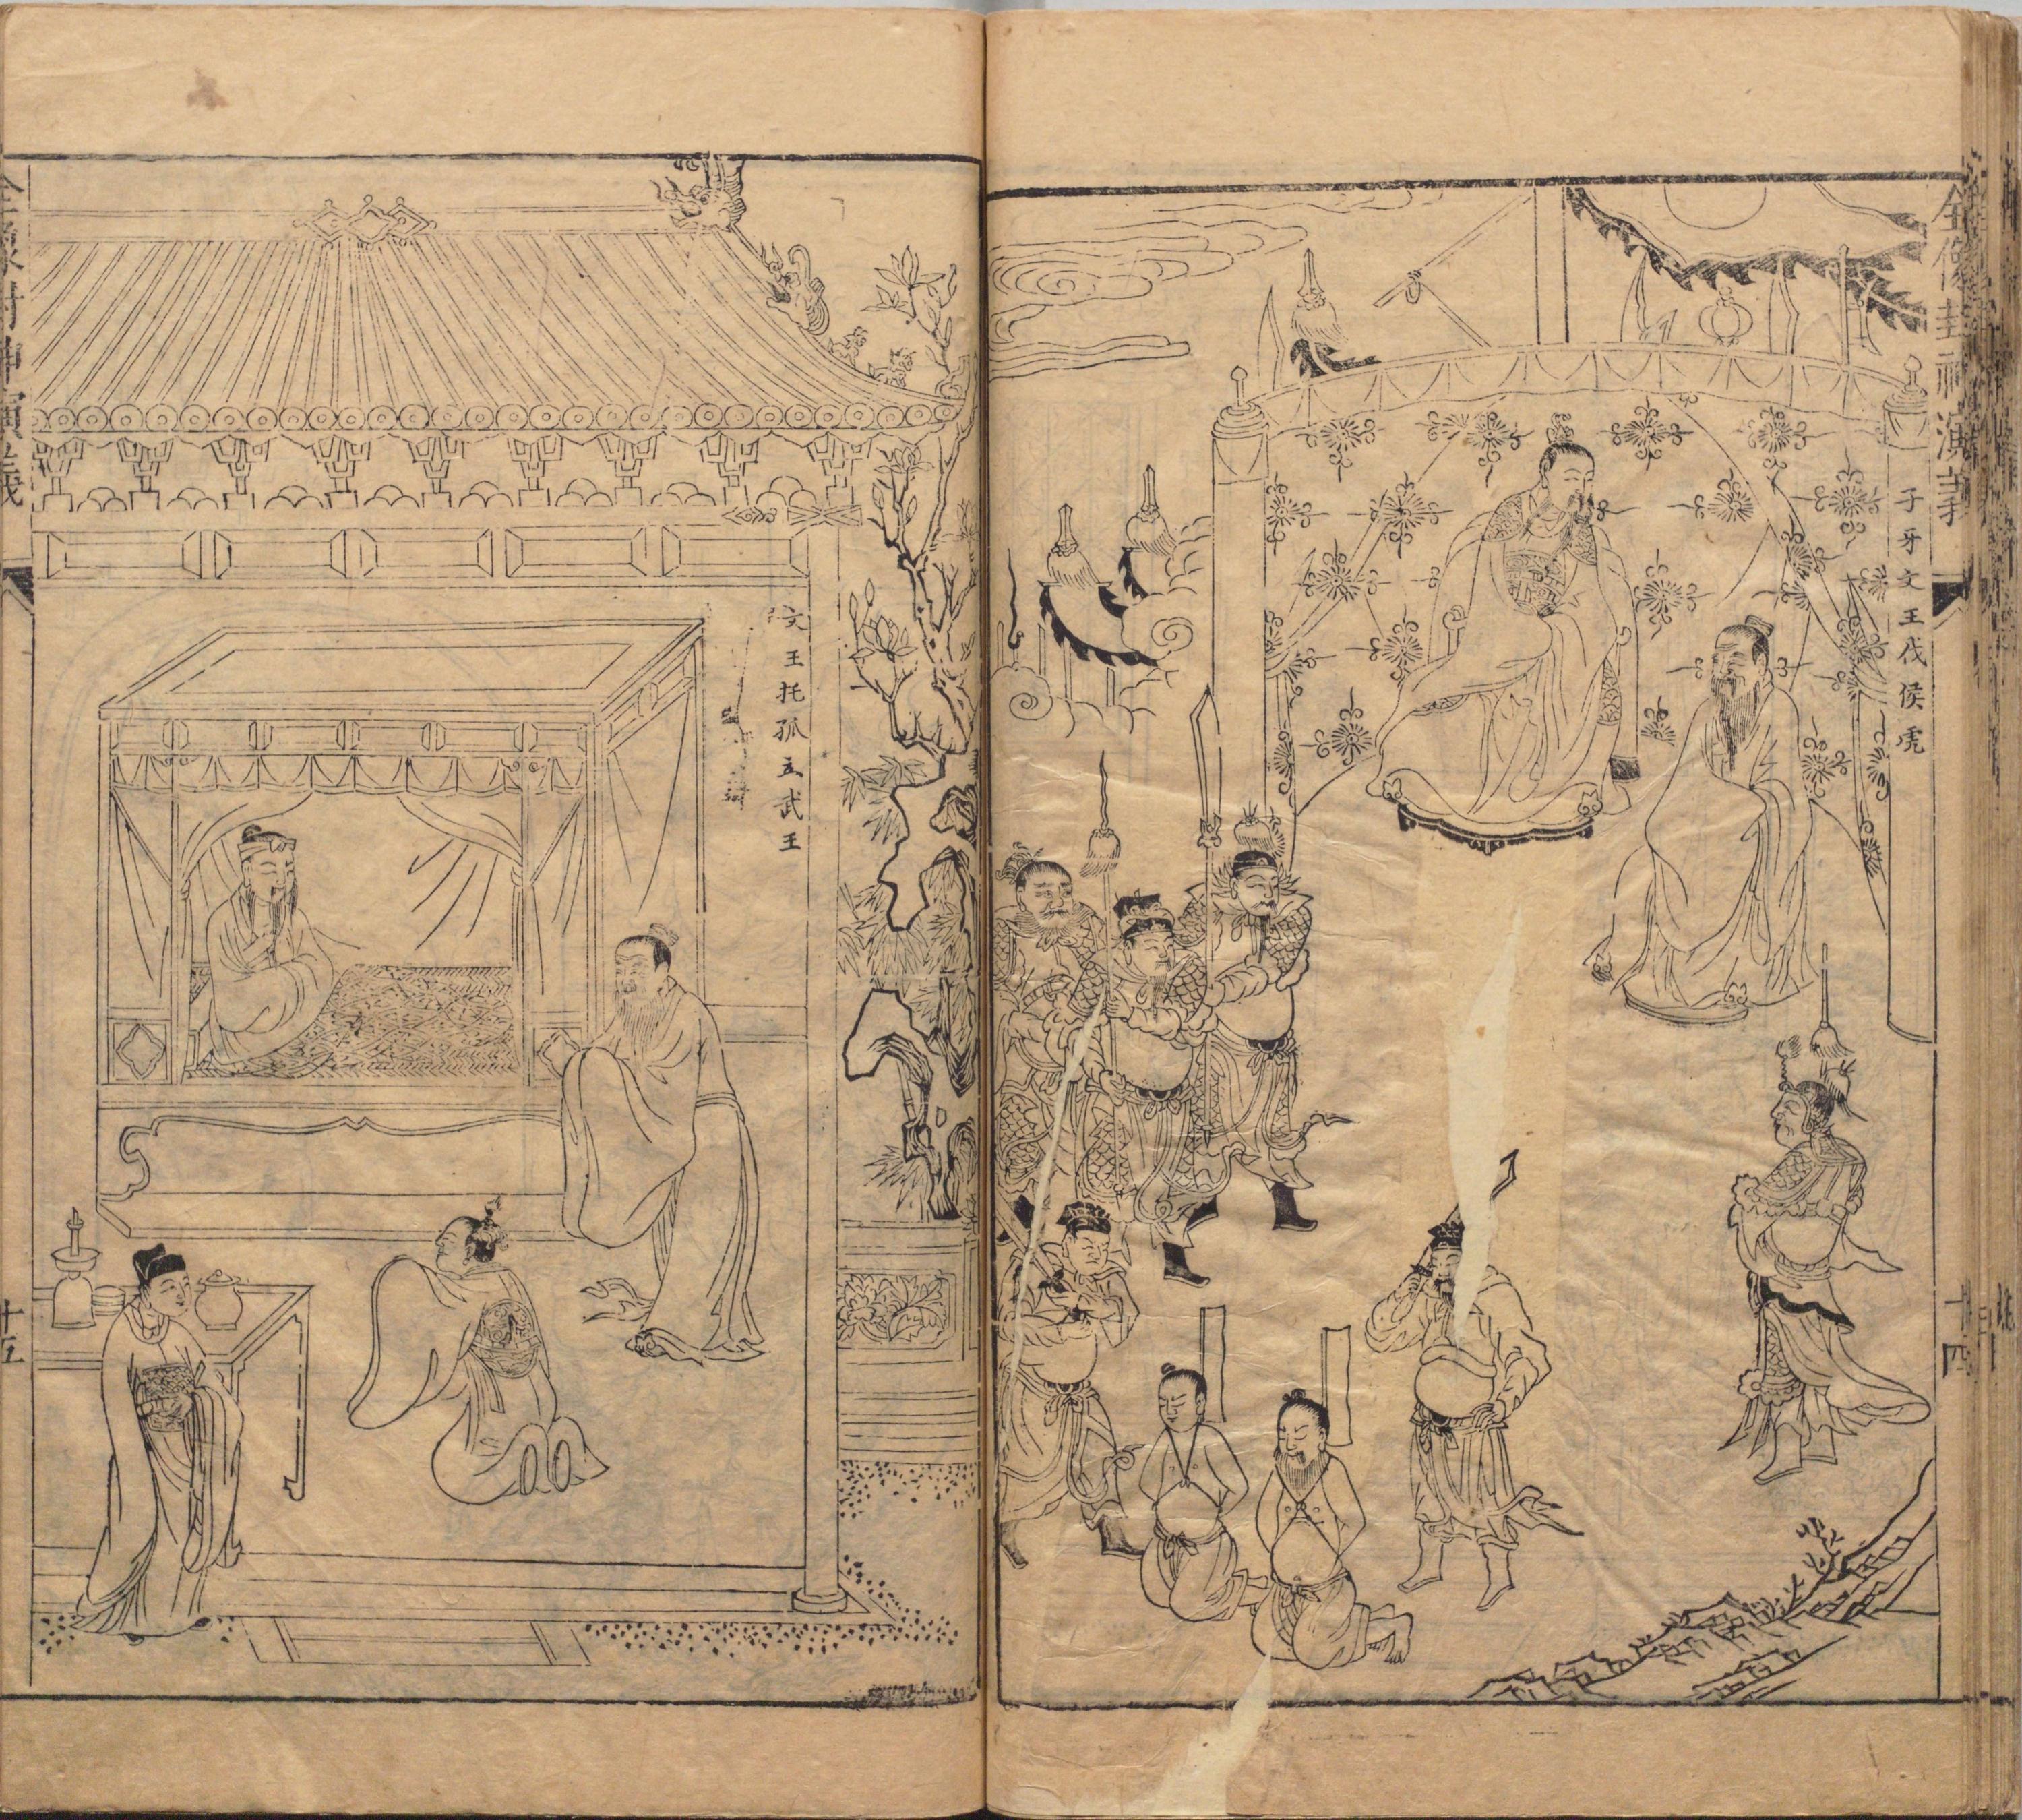 全像封神演義
子牙文王伐侯虎
十四
文王托孤立武王
十五